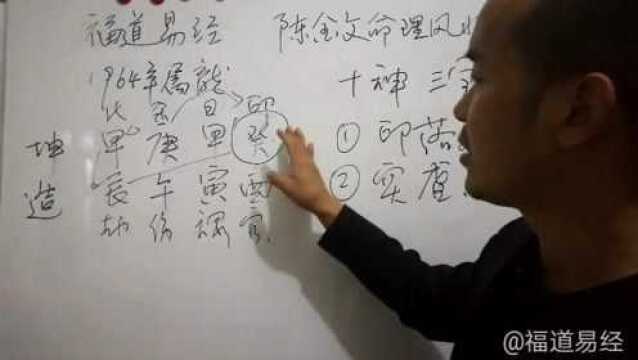 福道易经 陈金文命理风
1964年属龍 十神 三
比 日 印
甲 庚 甲 癸 ① 印落
坤造 辰 午 寅 酉 ②
伤 禄 官
@福道易经